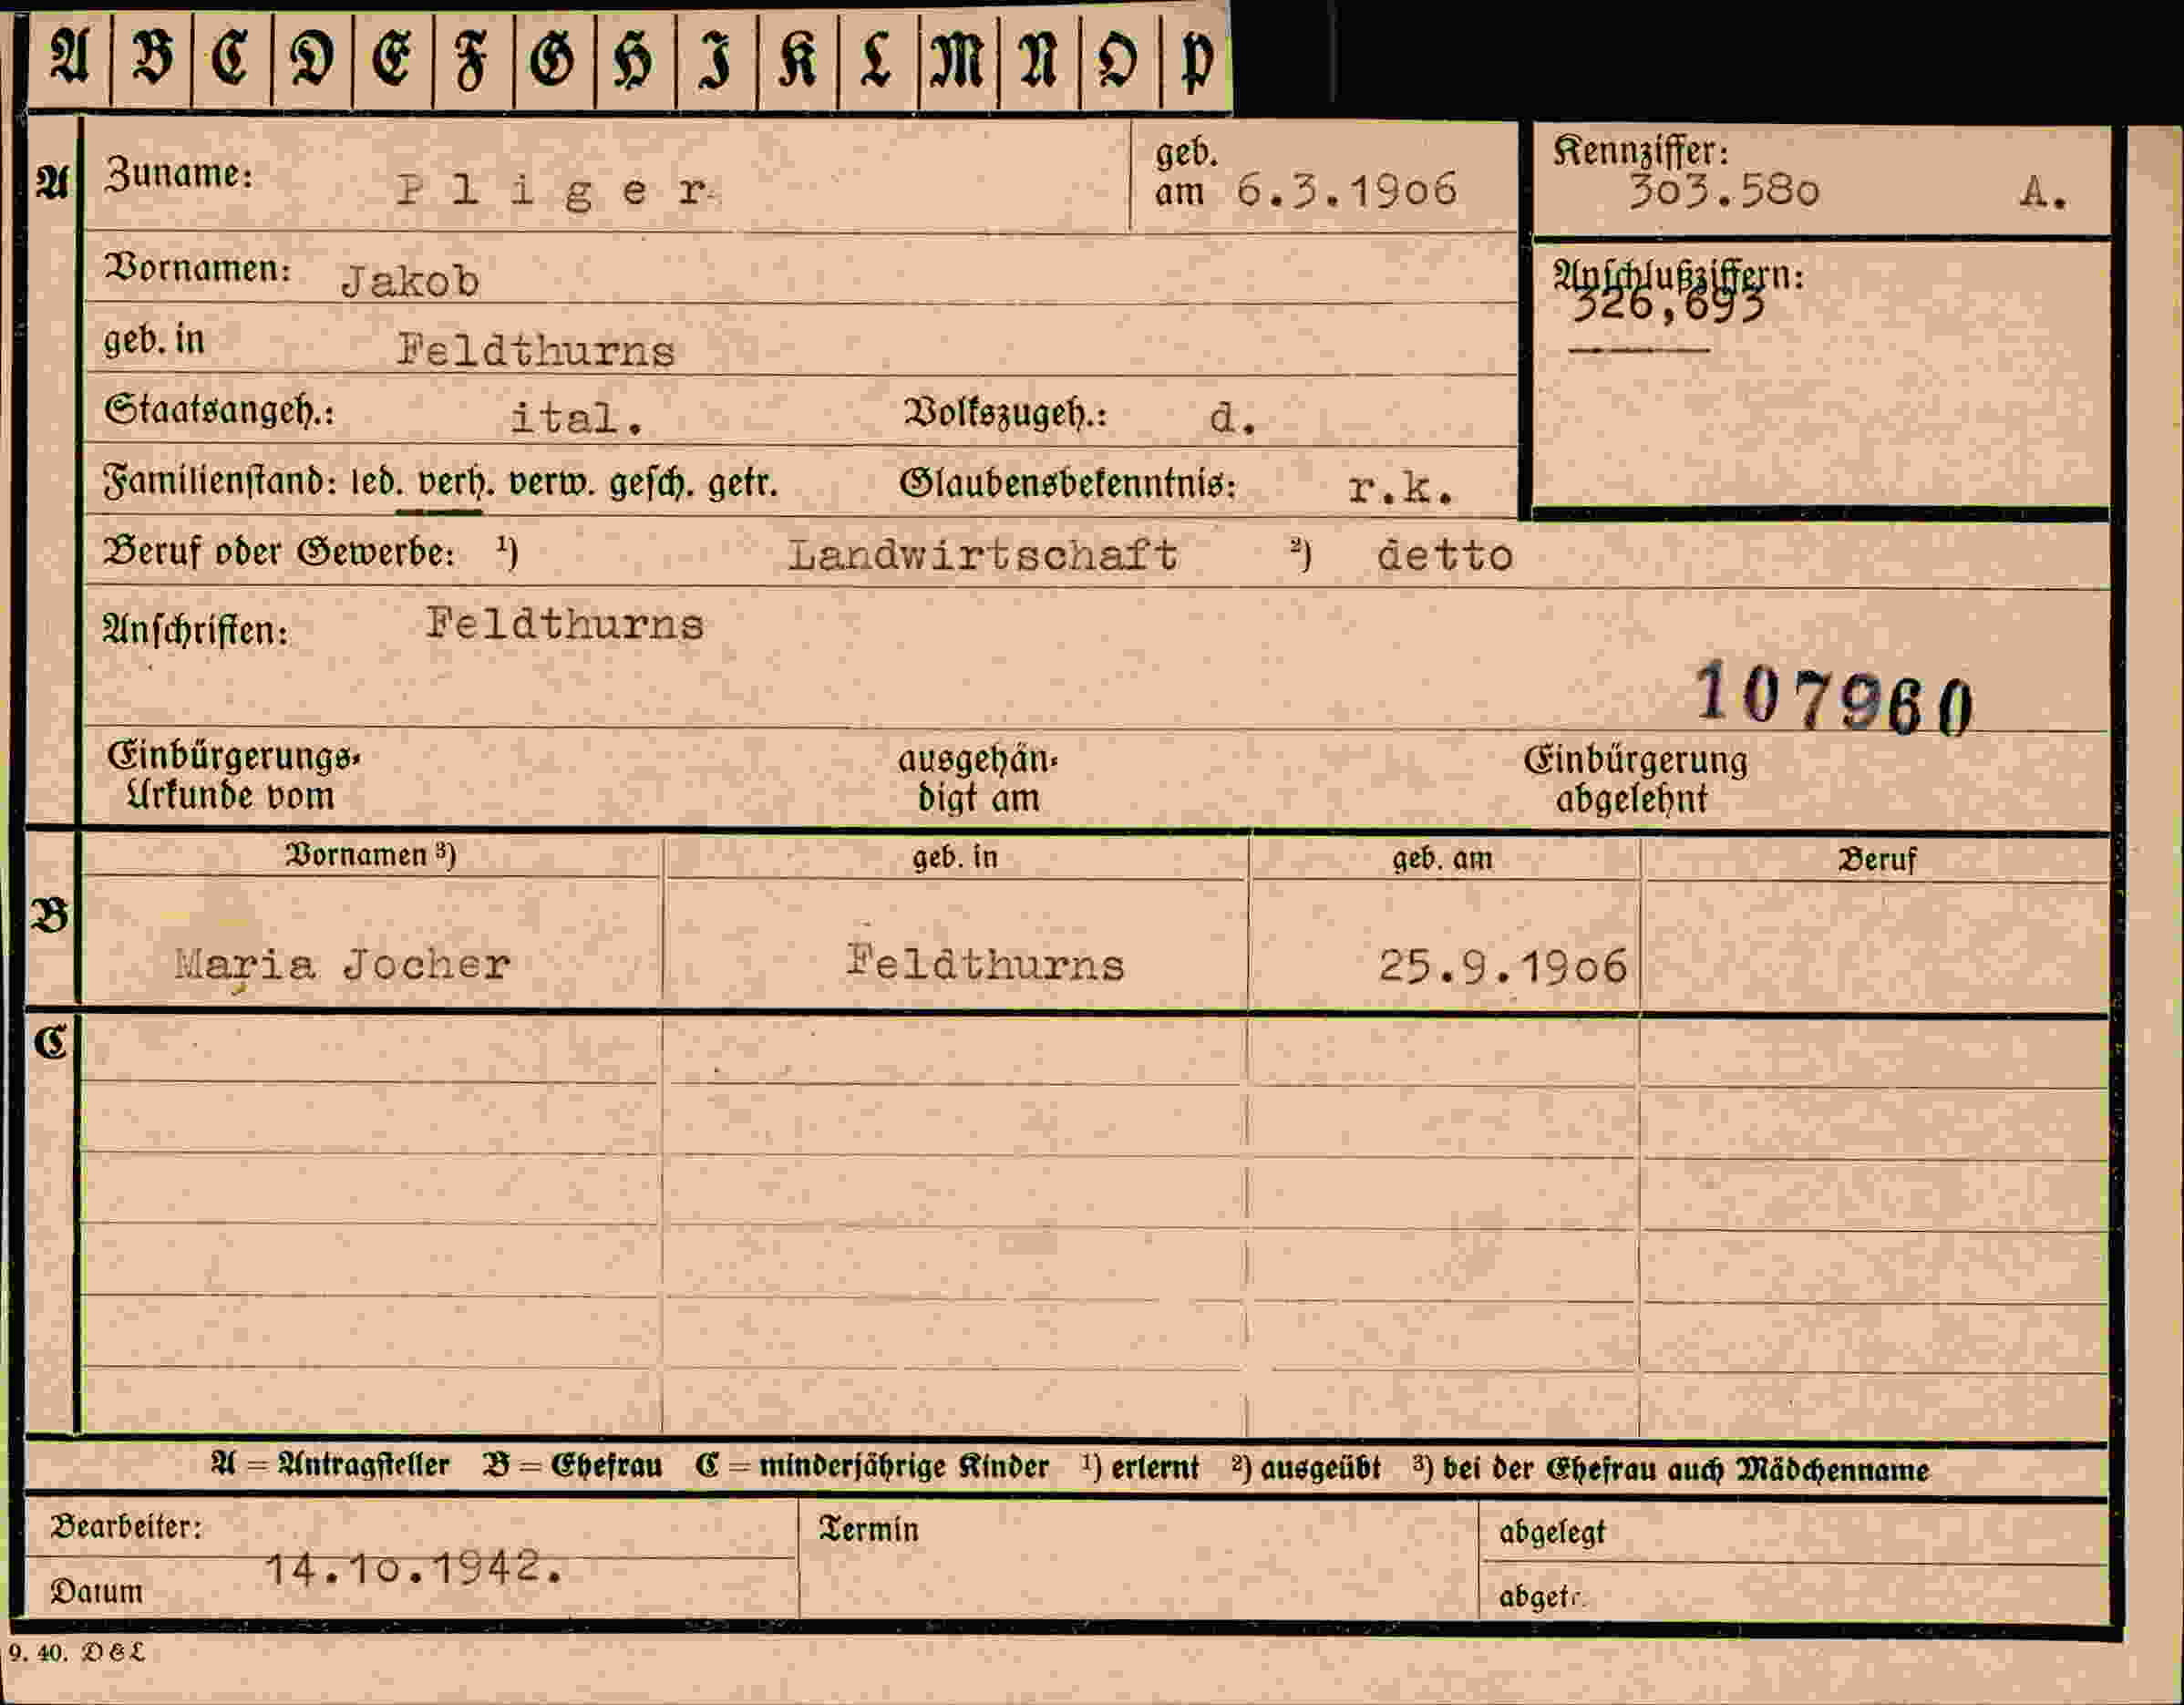 A B C D E F G H I K L M N O P
A Zuname: Pliger geb. am 6.3.1906 Kennziffer: 303.580 A.
Vornamen: Jakob Anschlußziffern: 326,693
geb. in Feldthurns
Staatsangeh.: ital. Volkszugeh.: d.
Familienstand: led. verh. verw. gesch. getr. Glaubensbekenntnis: r.k.
Beruf oder Gewerbe: ¹) Landwirtschaft ²) detto
Anschriften: Feldthurns
107960
Einbürgerungs- ausgehän- Einbürgerung
Urkunde vom digt am abgelehnt
Vornamen ³) geb. in geb. am Beruf
B
Maria Jocher Feldthurns 25.9.1906
C
A = Antragsteller B = Ehefrau C = minderjährige Kinder ¹) erlernt ²) ausgeübt ³) bei der Ehefrau auch Mädchenname
Bearbeiter: Termin abgelegt
14.10.1942.
Datum abgetr.
9. 40. D&L